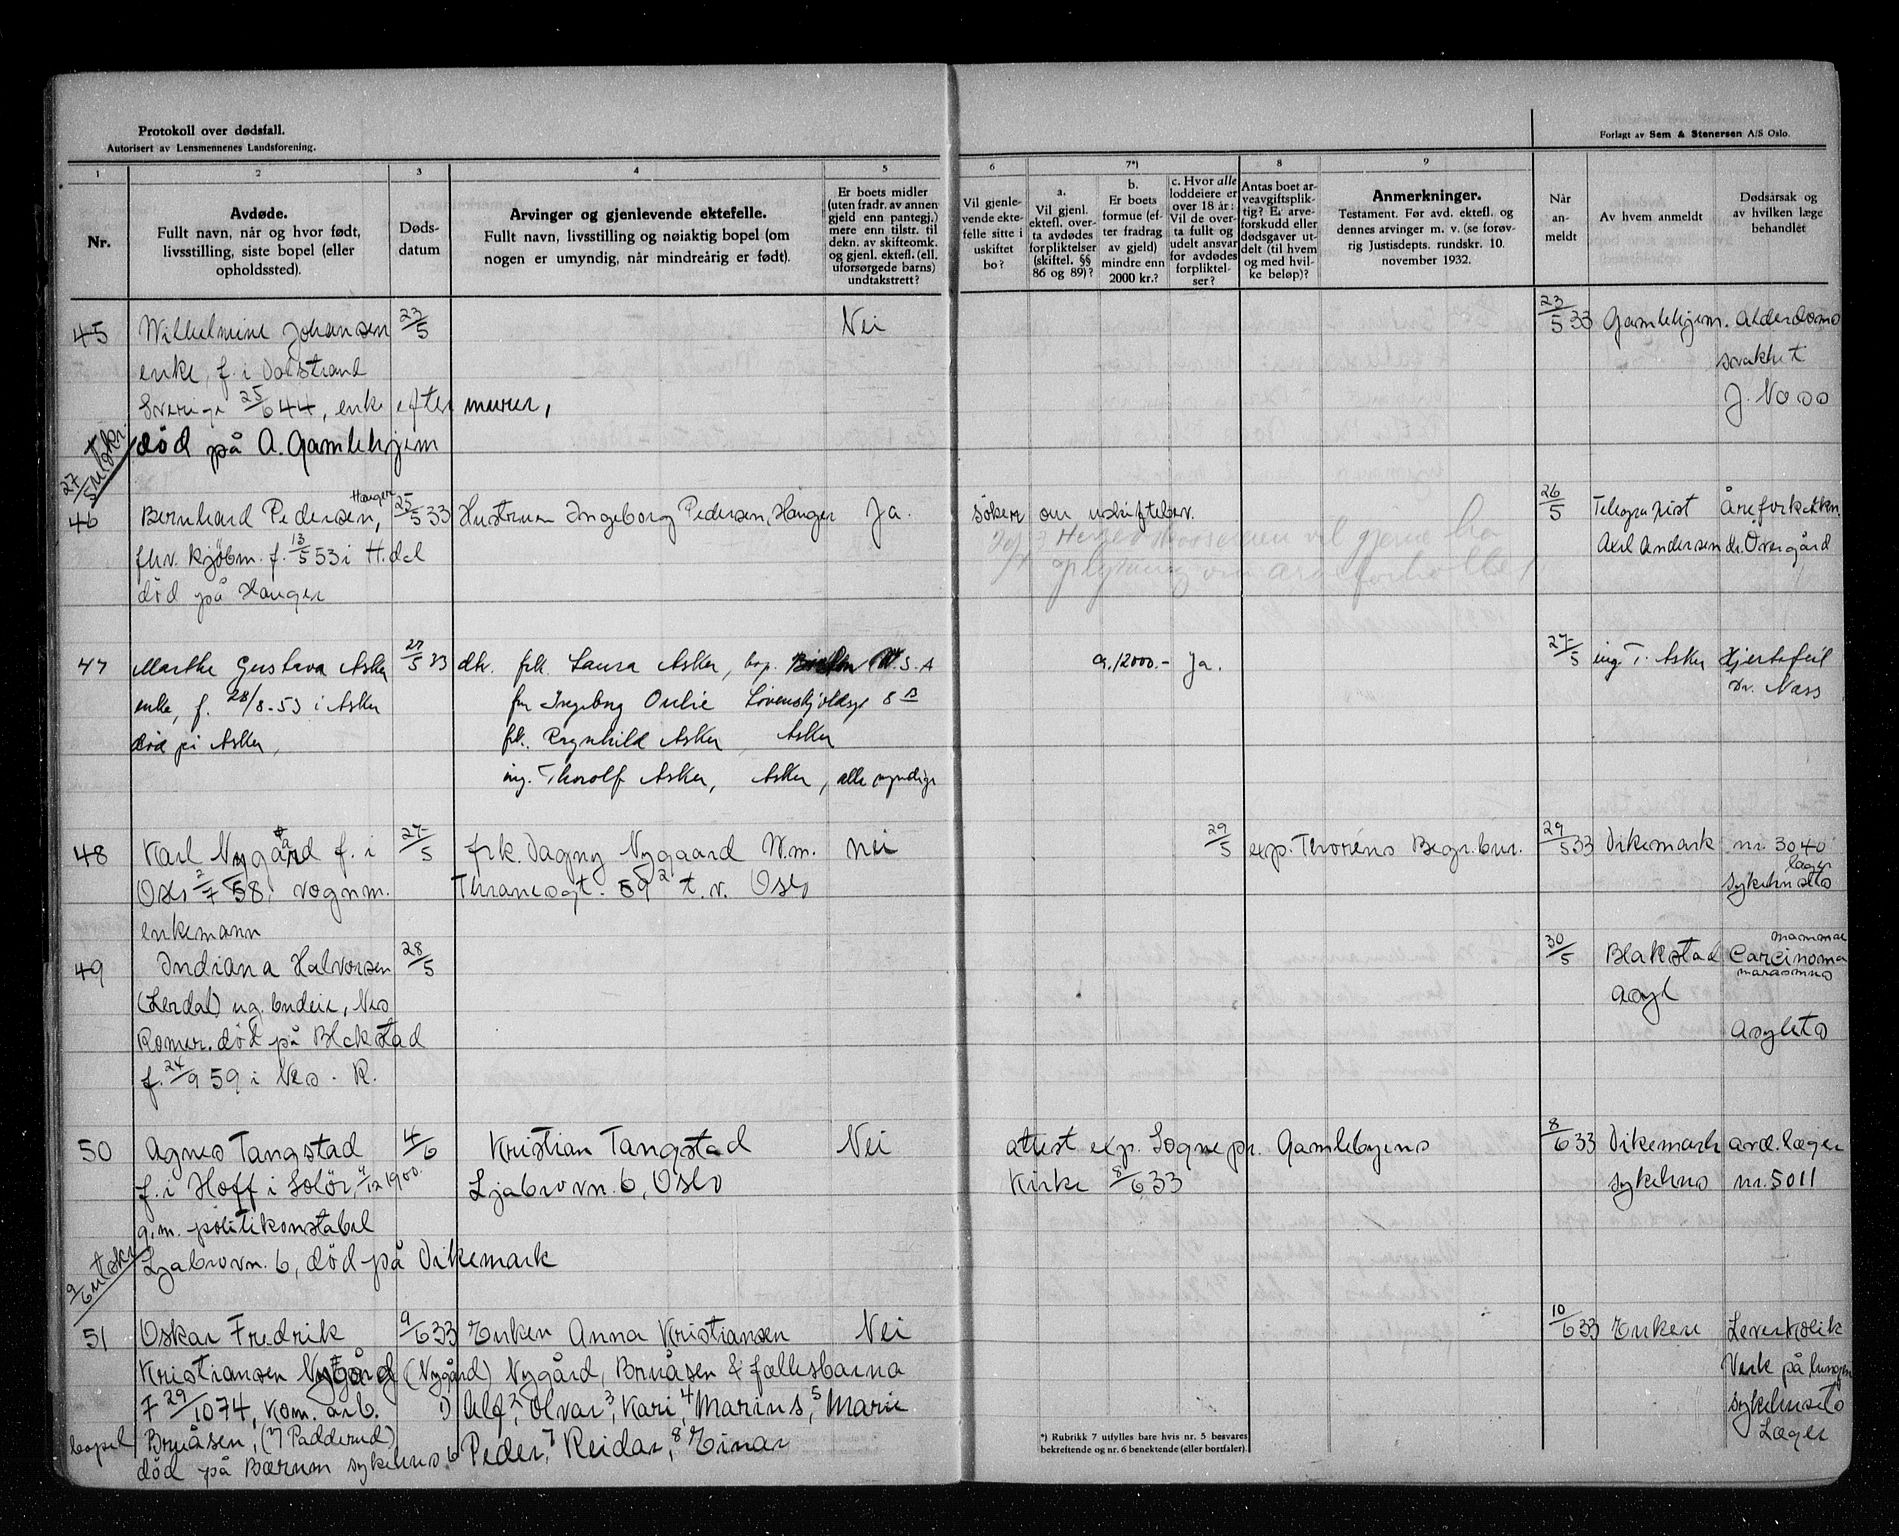 Protokoll over dødsfall.
Autorisert av Lensmennenes Landsforening.
Forlagt av Sem & Stenersen A/S Oslo.
1 2 3 4 5 6 7*) 8 9
Nr.
Avdøde.
Fullt navn, når og hvor født,
livsstilling, siste bopel (eller
opholdssted).
Døds-
datum
Arvinger og gjenlevende ektefelle.
Fullt navn, livsstilling og nøiaktig bopel (om
nogen er umyndig, når mindreårig er født).
Er boets midler
(uten fradr. av annen
gjeld enn pantegj.)
mere enn tilstr. til
dekn. av skifteomk.
og gjenl. ektefl. (ell.
uforsørgede barns)
undtakstrett?
Vil gjenle-
vende ekte-
felle sitte i
uskiftet
bo?
a.
Vil gjenl.
ektefl. over-
ta avdødes
forpliktelser
(skiftel. §§
86 og 89)?
b.
Er boets
formue (ef-
ter fradrag
av gjeld)
mindre enn
2000 kr.?
c. Hvor alle
loddeiere er
over 18 år:
Vil de over-
ta fullt og
udelt ansvar
for avdødes
forpliktel-
ser?
Antas boet ar-
veavgiftsplik-
tig? Er arve-
forskudd eller
dødsgaver ut-
delt (til hvem
og med hvil-
ke beløp)?
Anmerkninger.
Testament. Før avd. ektefl. og
dennes arvinger m. v. (se forøv-
rig Justisdepts. rundskr. 10.
november 1932.
Når
an-
meldt
Av hvem anmeldt
Dødsårsak og
av hvilken læge
behandlet
45 Wilhelmine Johansen 23/5 Nei 23/5 33 Gamlehjem. Alderdoms
enke, f. i svakhet
Sverige 25/6 44, enke efter murer, J. Noss
død på A. Gamlehjem
27/5 utskr.
46 Bernhard Pedersen, Hanger 25/5 33 Hustruen Ingeborg Pedersen, Hanger Ja. søker om uskiftebev. 26/5 Telegrafist Åreforkalkn.
fhv. kjøbm. f. 13/5 53 i H.dal vil gjerne ha Axel Andersen dr. Øvergård
død på Hanger om arveforholdet
47 Marthe Gustava Asker 27/5 33 dtr. frk. Laura Asker, bop. U.S.A a. 12000.- Ja. 27/5 ing. T. Asker Hjertefeil
enke, f. 28/8-53 i Asker fru Ingeborg Løvenskjoldsgt 8 B Dr. Næss
død på Asker, frk. Ragnhild Asker, Asker
ing. Thorolf Asker, Asker, alle myndige
48 Karl Nygård f. i 27/5 frk. Dagny Nygaard W.m. nei 29/5 exp. Thoréns Begr.bur. 29/5 33 Dikemark nr. 3040
Oslo 2/7 58, vognm. Thranesgt. 59 2 t.v. Oslo sykehusets læger
enkemann
49 Indiana Halvorsen 28/5 30/5 Blakstad Carcinoma mammae
(Lerdal) ug. budeie, Nes Asyl marasmus
Romer. død på Blakstad Asylets
f. 24/9 59 i Nes. R.
50 Agnes Tangstad 4/6 Kristian Tangstad Nei attest exp. Sognepr. Gamlebyens 8/6 33 Dikemark avd. læger
f. i Hoff i Solør, 4/12 1900. Ljabrovn. 6, Oslo Kirke 8/6 33 sykehus nr. 5011
g.m. politikonstabel
Ljabrovn. 6, død på Dikemark
9/6 utskr.
51 Oskar Fredrik 9/6 33 Enken Anna Kristiansen Nei 10/6 33 Enken Leverkolik
Kristiansen Nygård (Nygård) Nygård, Bruåsen & fællesbarna Verk på lungen
F 29/10 74, kom. arb. 1) Alf, 2 Olvar 3, Kari, 4 Marius, 5 Marie sykehusets
bopel Bruåsen, (7/ Padderud) 6 Peder, 7 Reidar, 8 Einar Læger
død på Bærum sykehus
*) Rubrikk 7 utfylles bare hvis nr. 5 besvares
bekreftende og nr. 6 benektende (eller bortfaler).